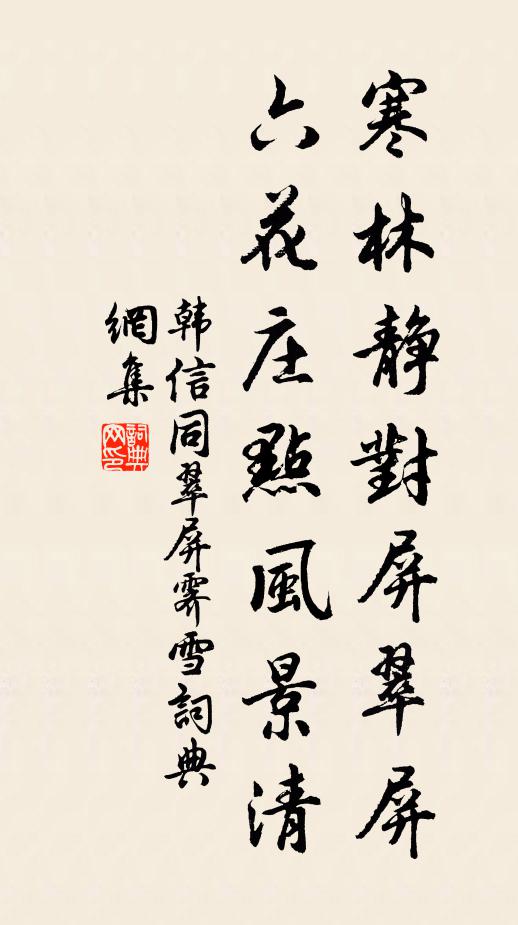 寒林静對屏翠屏
六花庄點風景清
韩信同翠屏霽雪詞典
網集
詞典網印